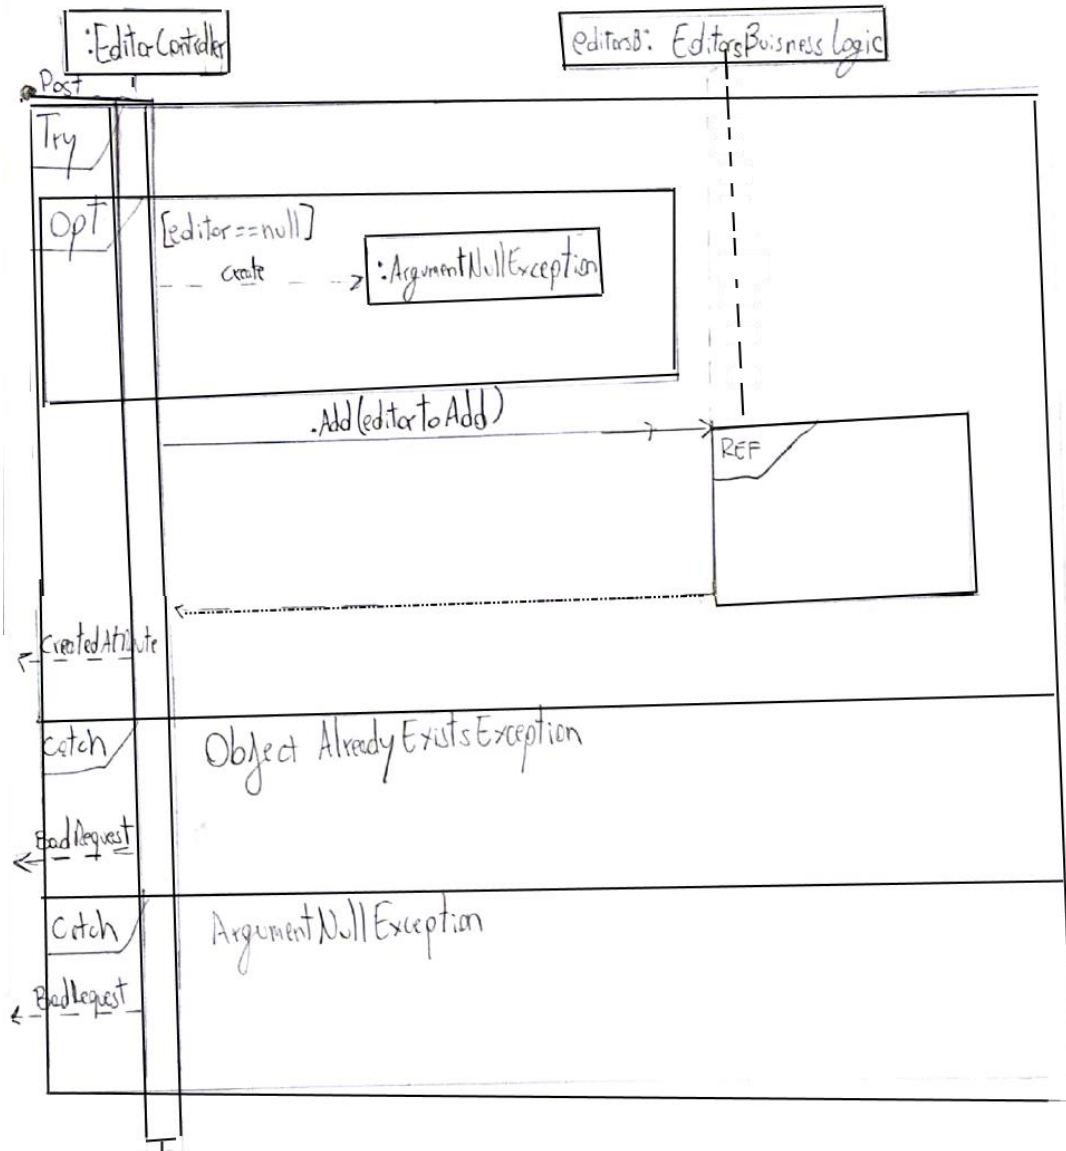 :EditorController
editorsB: EditorsBuisness Logic
Post
Try
OpT
[editor==null]
create
:ArgumentNullException
.Add(editor to Add)
REF
CreatedAtibute
Catch
Object AlreadyExistsException
BadRequest
Catch
ArgumentNullException
BadRequest